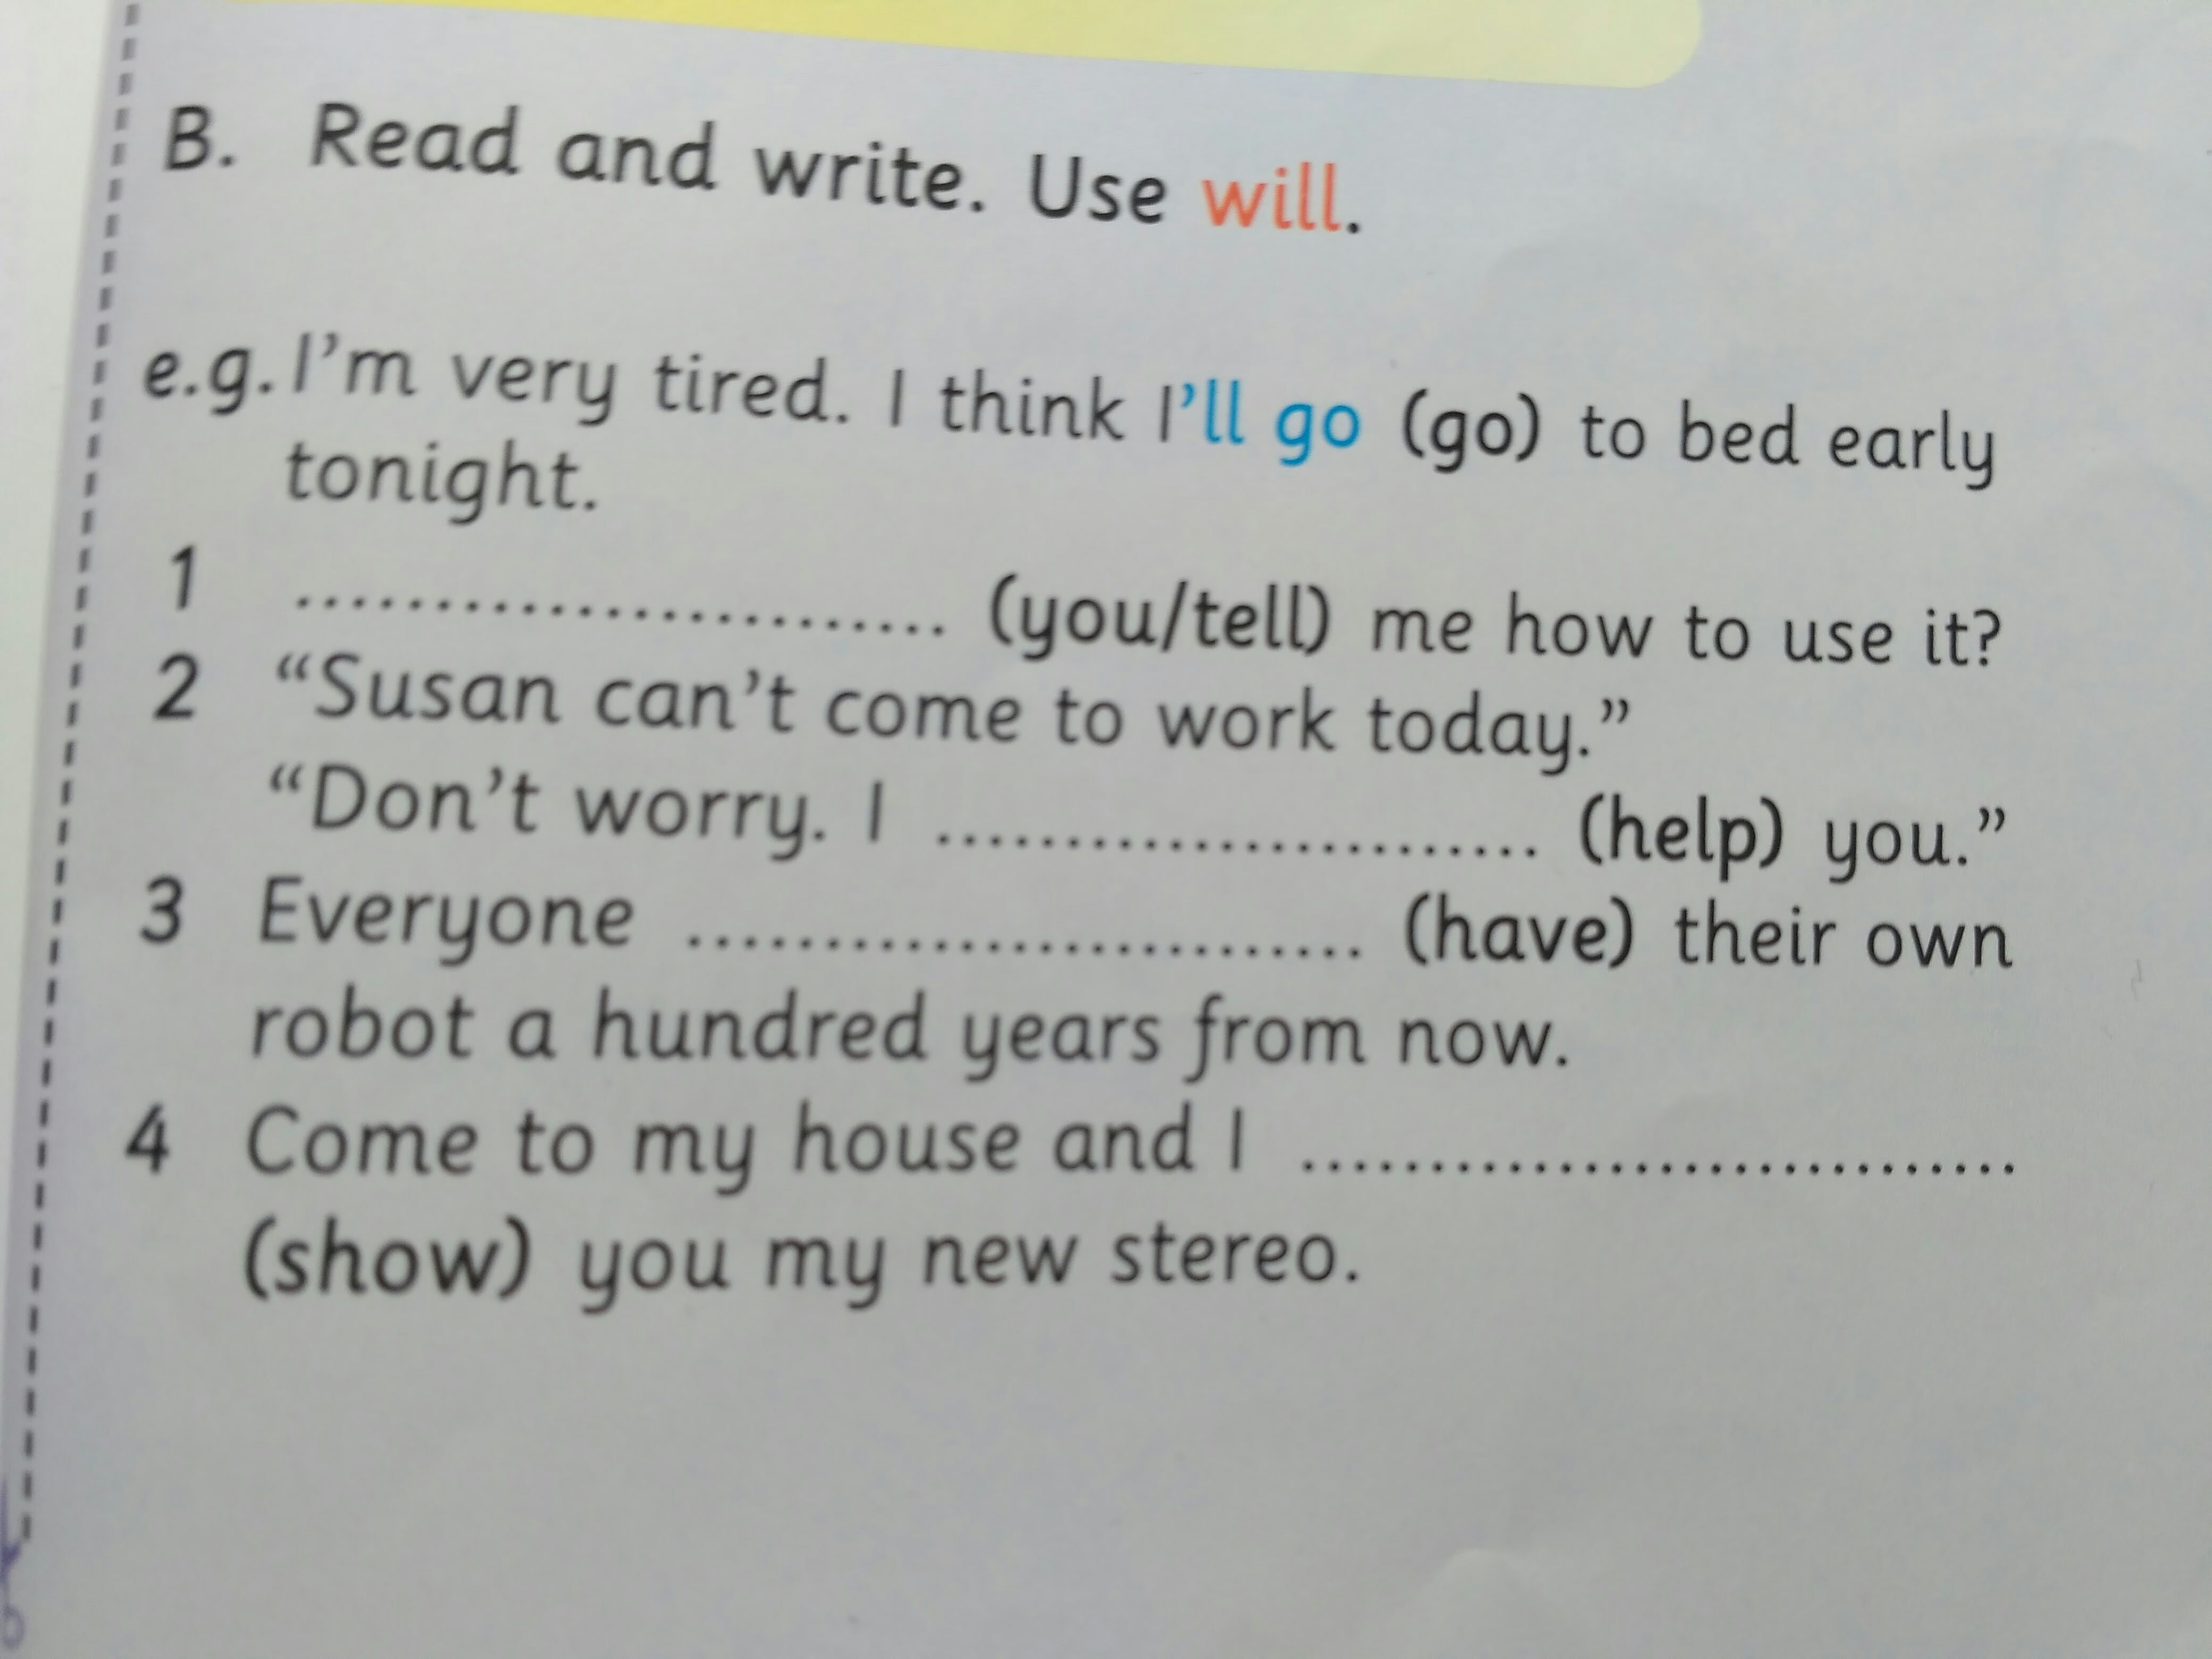 B. Read and write. Use will.
e.g. I'm very tired. I think I'll go (go) to bed early
tonight.
1 ........................ (you/tell) me how to use it?
2 “Susan can't come to work today.”
“Don't worry. I ....................... (help) you.”
3 Everyone ......................... (have) their own
robot a hundred years from now.
4 Come to my house and I ...........................
(show) you my new stereo.